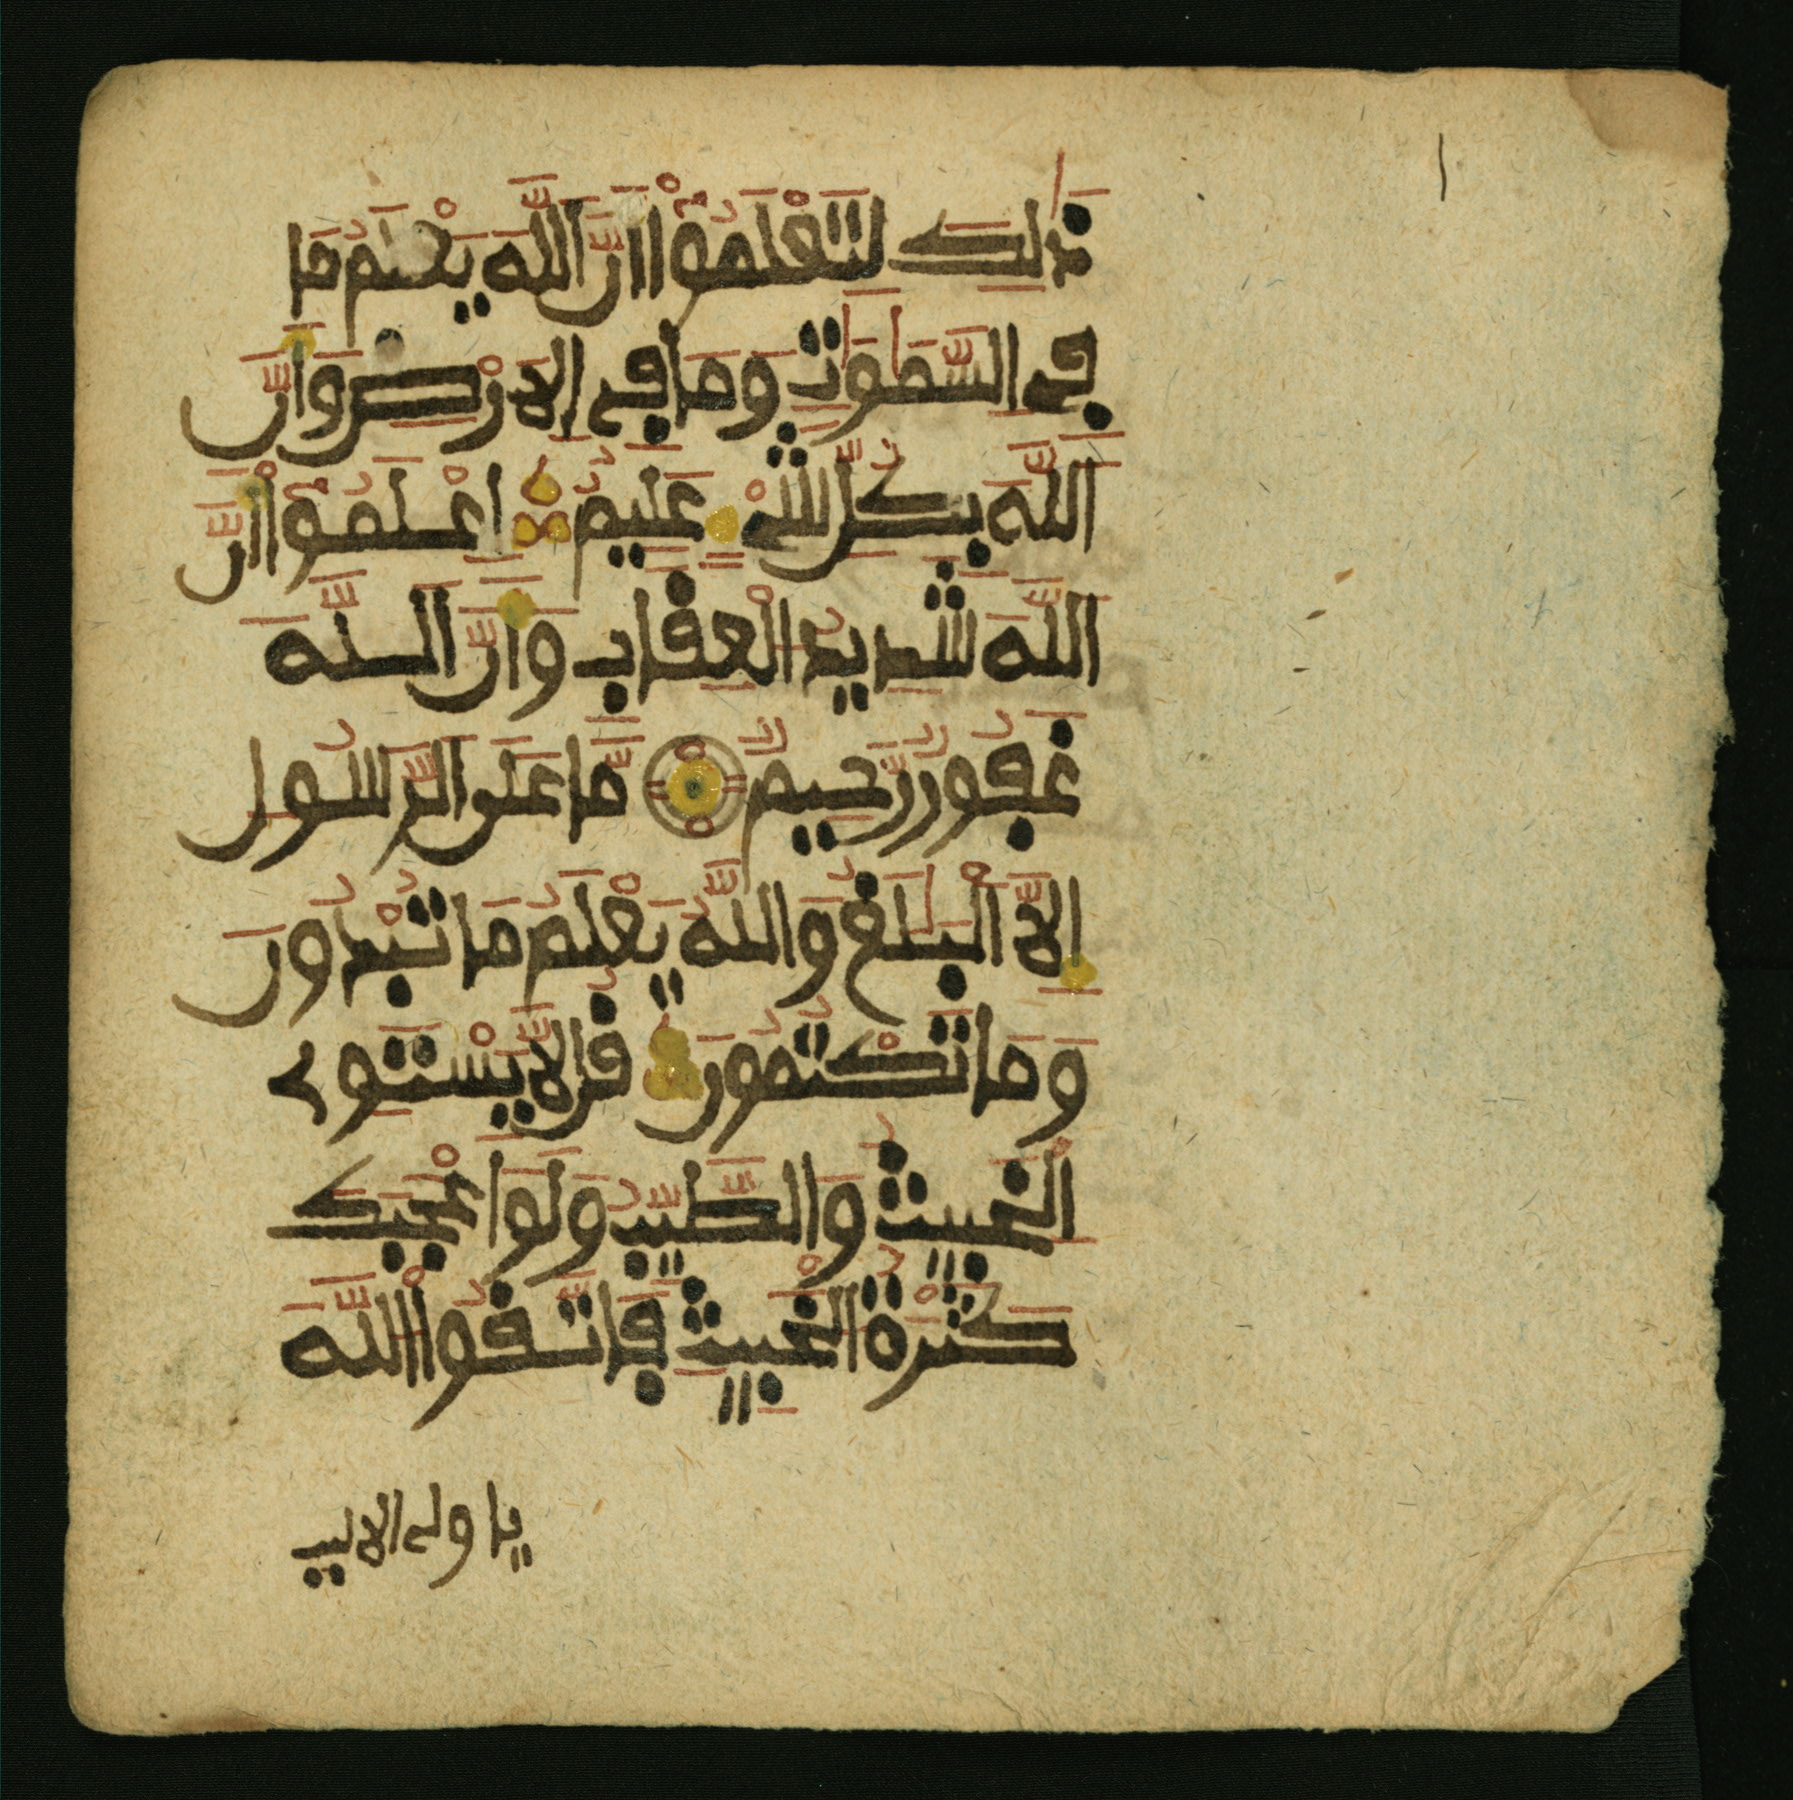 ١
ذَٰلِكَ لِتَعْلَمُوٓاْ أَنَّ اللَّهَ يَعْلَمُ مَا
فِى السَّمَٰوَٰتِ وَمَا فِى الَارْضِ وَأَنَّ
اللَّهَ بِكُلِّ شَىْءٍ عَلِيمٌ اِعْلَمُوٓاْ أَنَّ
اللَّهَ شَدِيدُ الْعِقَابِ وَأَنَّ اللَّهَ
غَفُورٌ رَّحِيمٌ مَّا عَلَى الرَّسُولِ
إِلَّا الْبَلَٰغُ وَاللَّهُ يَعْلَمُ مَا تُبْدُونَ
وَمَا تَكْتُمُونَ قُل لَّا يَسْتَوِى
الْخَبِيثُ وَالطَّيِّبُ وَلَوَ اعْجَبَكَ
كَثْرَةُ الْخَبِيثِ فَاتَّقُواْ اللَّهَ
ياولى الالبب